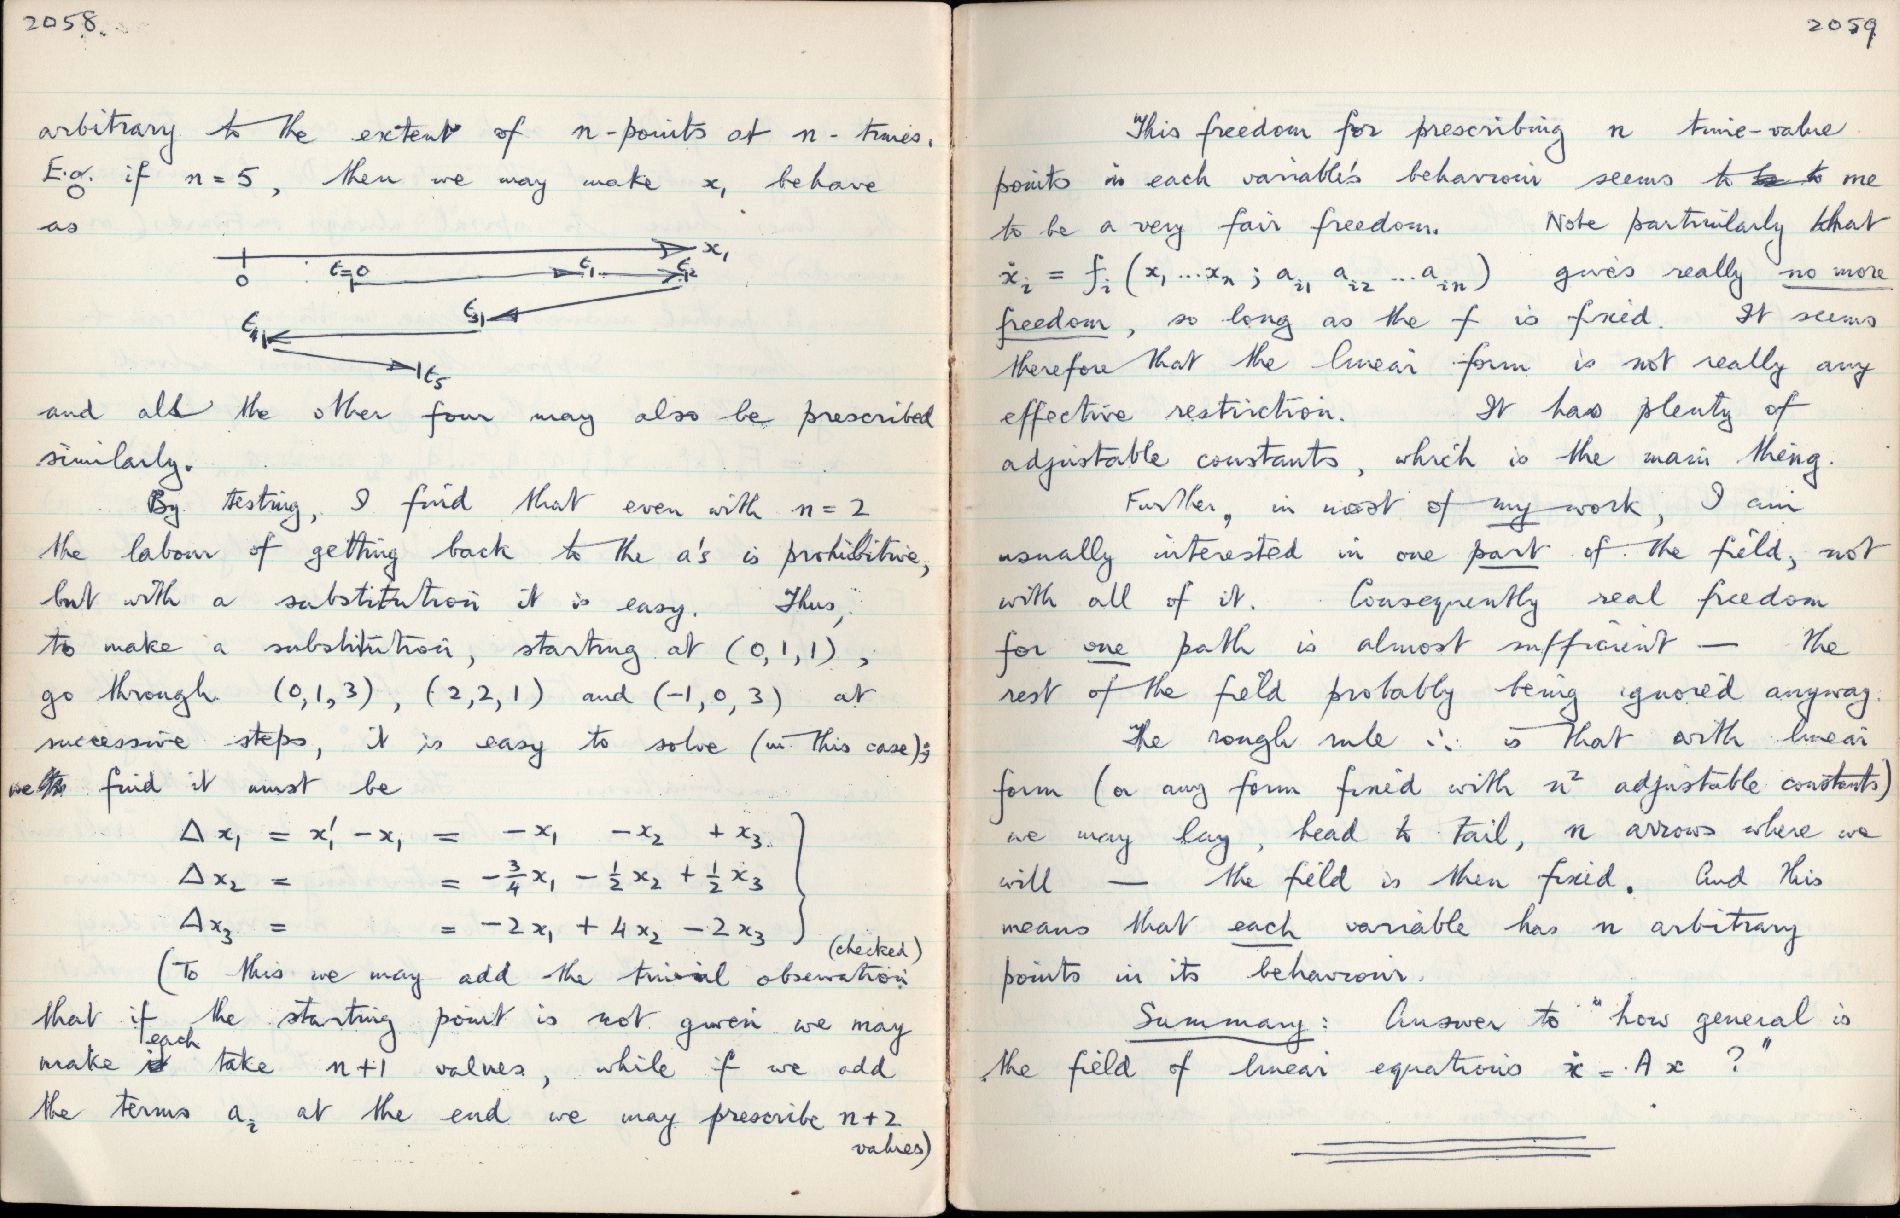 2058.
arbitrary to the extent of n-points at n-times.
E.g. if n=5, then we may make x₁ behave
as
x₁
0 t=0 t₁ t₂
t₃
t₄
t₅
and all the other four may also be prescribed
similarly.
By testing, I find that even with n=2
the labour of getting back to the a's is prohibitive,
but with a substitution it is easy. Thus,
to make a substitution, starting at (0,1,1),
go through (0,1,3), (2,2,1) and (-1,0,3) at
successive steps, it is easy to solve (in this case);
we find it must be
Δx₁ = x₁' - x₁ = -x₁ -x₂ +x₃
Δx₂ = = -¾x₁ - ½x₂ + ½x₃
Δx₃ = = -2x₁ + 4x₂ - 2x₃
(checked)
(To this we may add the trivial observation
that if the starting point is not given we may
make each take n+1 values, while if we add
the terms aᵢ at the end we may prescribe n+2
values)
2059
This freedom for prescribing n time-value
points in each variable's behaviour seems to me
to be a very fair freedom. Note particularly that
ẋᵢ = fᵢ(x₁...xₙ; aᵢ₁ aᵢ₂ ...aᵢₙ) gives really no more
freedom, so long as the f is fixed. It seems
therefore that the linear form is not really any
effective restriction. It has plenty of
adjustable constants, which is the main thing.
Further, in most of my work, I am
usually interested in one part of the field, not
with all of it. Consequently real freedom
for one path is almost sufficient — the
rest of the field probably being ignored anyway.
The rough rule ∴ is that with linear
form (or any form fixed with n² adjustable constants)
we may lay, head to tail, n arrows where we
will — the field is then fixed. And this
means that each variable has n arbitrary
points in its behaviour.
Summary: Answer to "how general is
the field of linear equations ẋ = Ax ?"